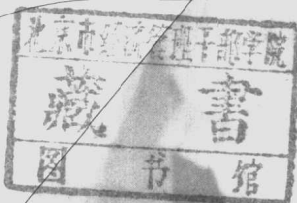 北京市管理干部学院
藏書
图书馆